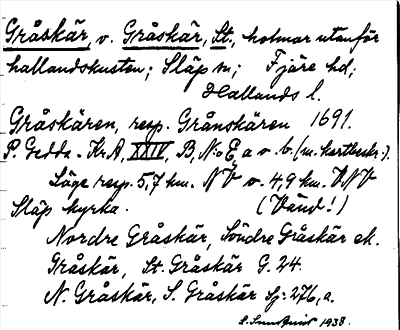 Gråskär, v. Gråskär, St., holmar utanför
hallandskusten; Släp sn; Fjäre hd;
Hallands l.
Gråskären, resp. Grånskären 1691.
P. Gedda. Kr.A, XXIV, B, N:o E, a o. b. (m. kartbeskr.).
Läge resp. 5,7 km. NV o. 4,9 km. VNV
Släp kyrka. (Vänd!)
Nordre Gråskär, Söndre Gråskär ek.
Gråskär, St. Gråskär G. 24.
N. Gråskär, S. Gråskär Sj: 276, a.
1938.